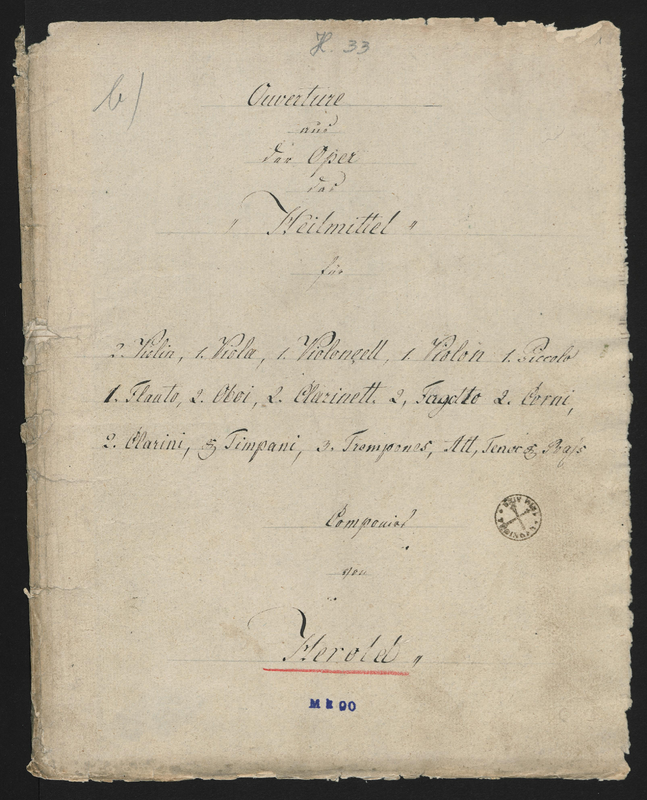 H. 33
b)
Ouverture
aus
der Oper
das
„ Heilmittel "
für
2. Violin, 1. Viola, 1. Violonzell, 1. Violon 1. Piccolo
1. Flauto, 2. Oboi, 2. Clarinett. 2, Fagotto 2. Corni,
2. Clarini, & Timpani, 3. Trompones, Alt, Tenor & Bass
Componirt
von
Herold „
M k 90